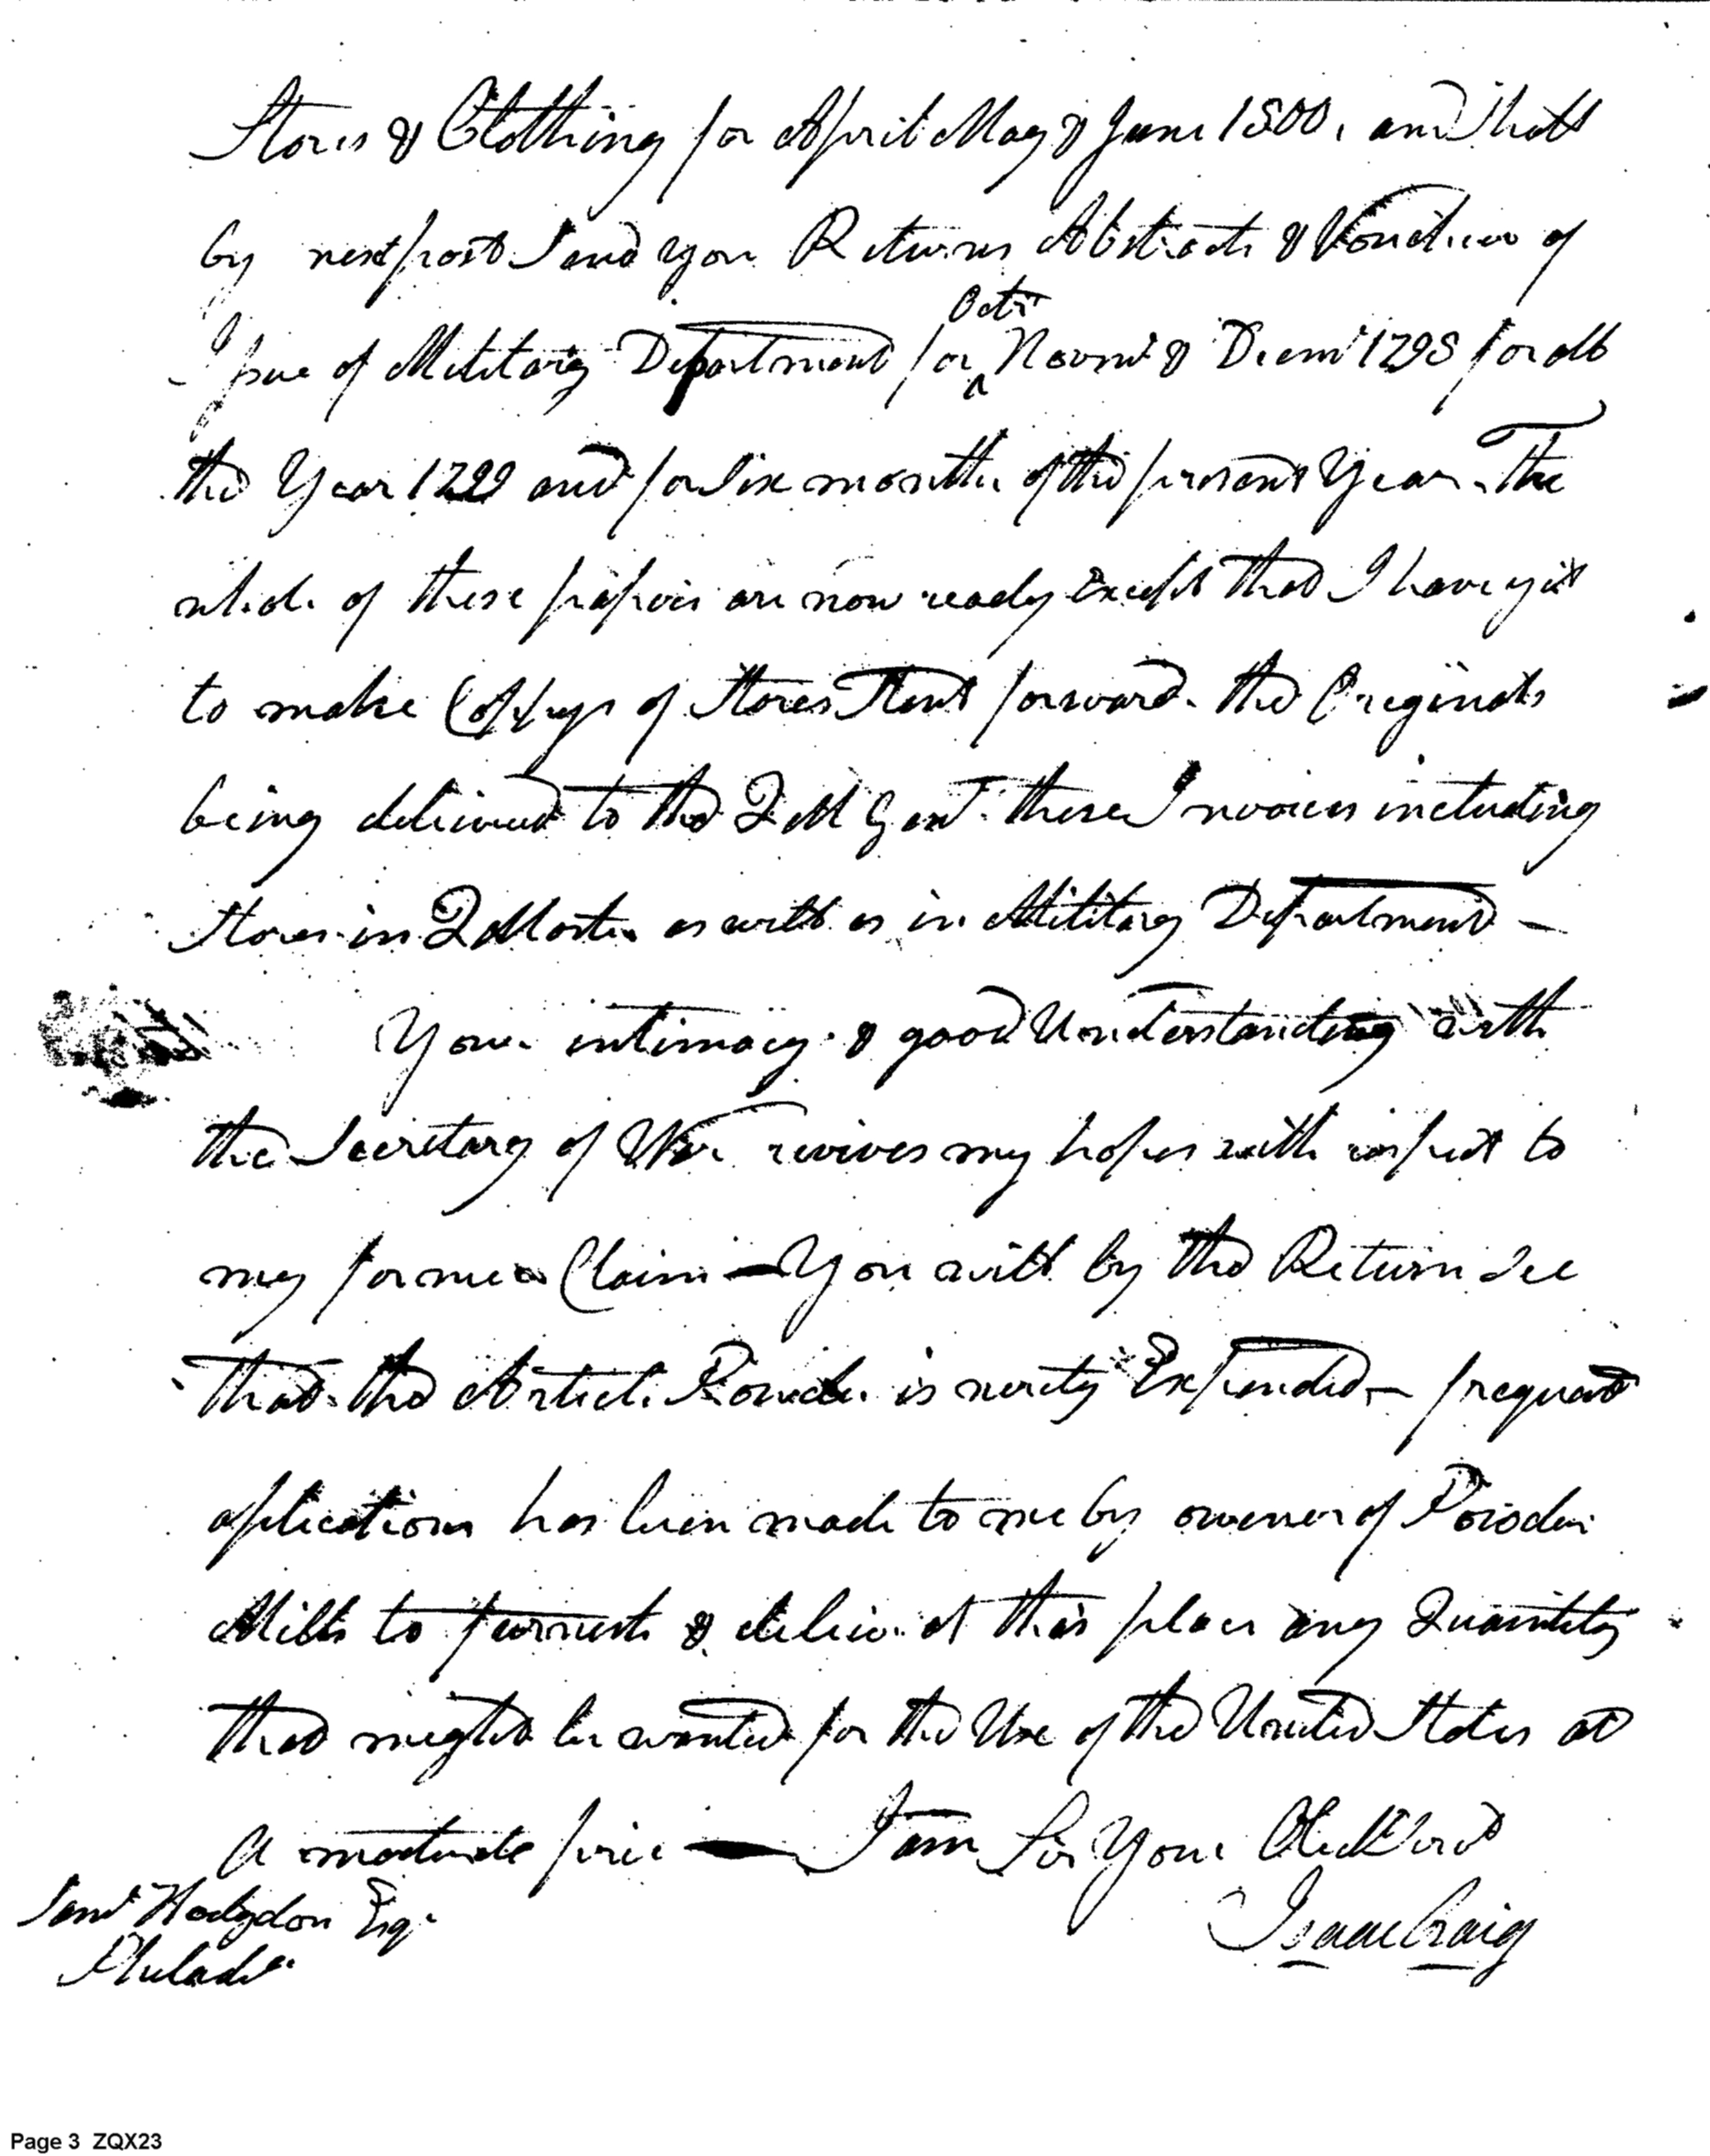 Stores & Clothing for April May & June 1800, and shall
by next post Send you Returns Abstracts & Vouchers of
Issue of Military Department for Octr Novmr & Decmr 1798 for all
the Year 1799 and for Six months of the present Year. The
whole of these papers are now ready Except that I have yet
to make Coppys of Stores Sent forward. the Originals
being delivered to the Q M Genl. these Invoices including
Stores in Q Master as well as in Military Department —
Your intimacy & good Understanding with
the Secretary of War revives my hopes with respect to
my former Claim — You will by the Return See
that the Article Powder is nearly Expended — frequent
aplications has been made to me by owners of Powder
Mills to furnish & deliver at this place any Quantity
that might be wanted for the Use of the United States at
A moderate price — I am Sir Your Obedt Servt
Isaac Craig
Saml Hodgdon Esqr
Philada
Page 3 ZQX23